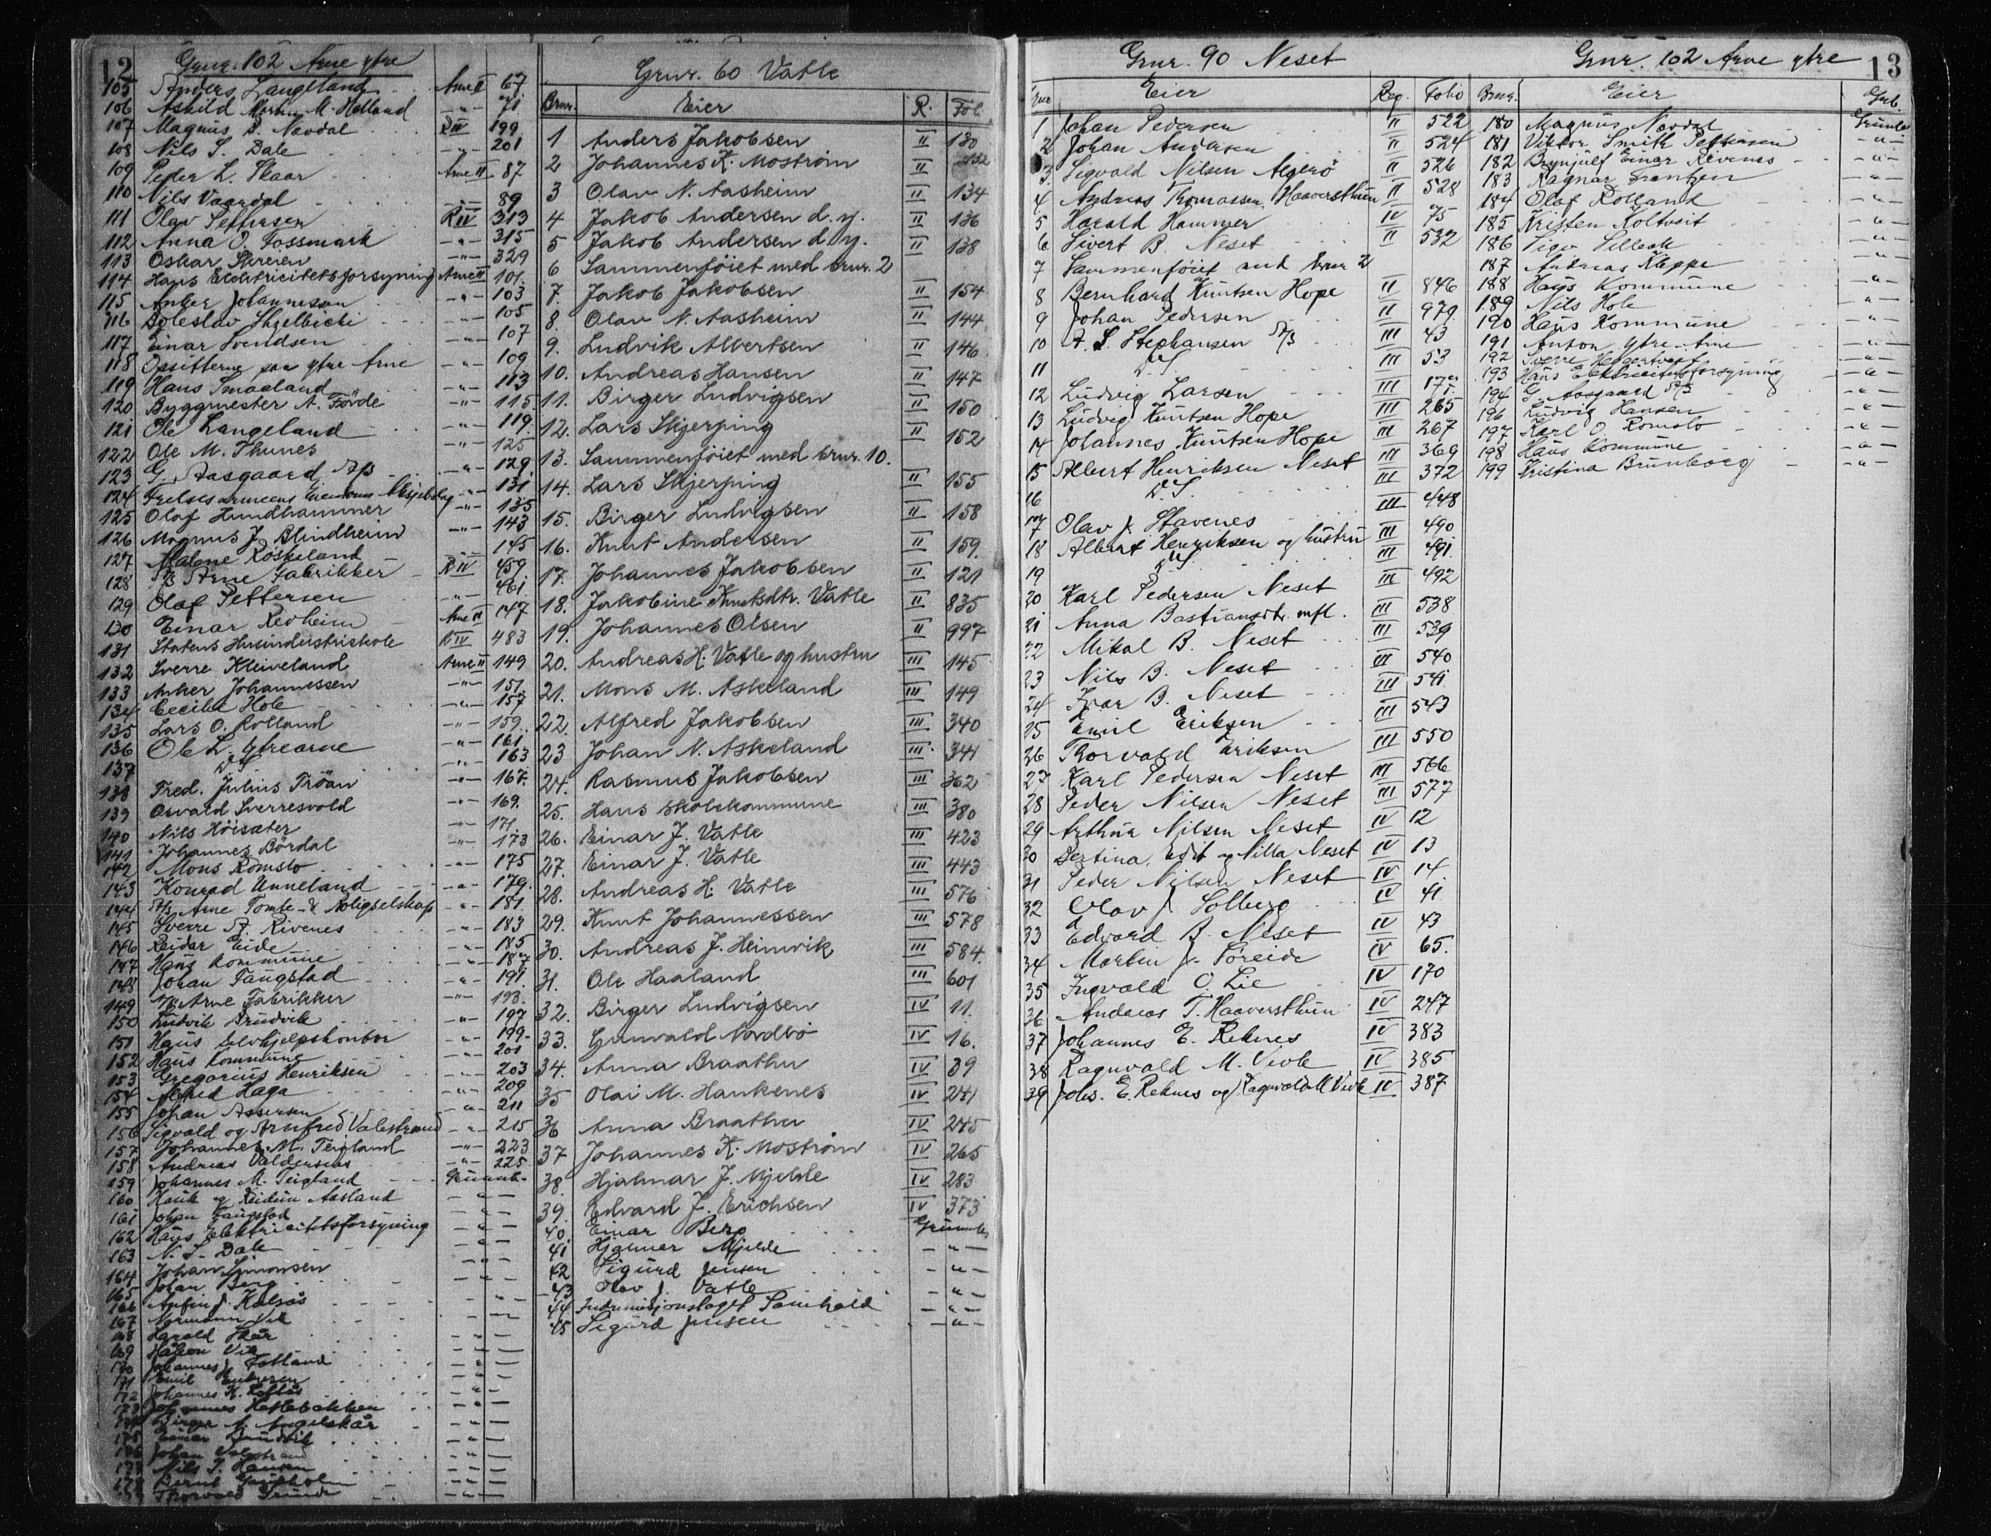 12 Gnr. 102 Arne ytre
105 Anders Langeland Arne II 67
106 Askild M. Helland 71
107 Magnus S. Navdal R III 199
108 Nils S. Dale 201
109 Peder L. Skaar Arne II 87
110 Nils Vaardal 89
111 Olav Pettersen R IV 313
112 Anna O. Fossmark -"- 315
113 Oskar -"- 329
114 Haus Elektricitetsforsyning Arne II 101
115 Anker Johannesen -"- 103
116 105
117 Einar Svendsen 107
118 Opsitterne paa ytre Arne -"- 109
119 Hans Smaaland -"- 113
120 Byggmester A. Førde -"- 115
121 Ole Langeland -"- 119
122 Ole M. Thunes -"- 125
123 G. Aasgaard A/S -"- 129
124 Frelsesarmeens -"- 131
125 Olaf Hundhammer 135
126 Magnus J. Blindheim -"- 143
127 Malene Røskeland 145
128 A/S Arne Fabrikker R IV 459
129 Olaf Pettersen -"- 461
130 Einar Revheim Arne II 147
131 Statens Husindustriskole R IV 483
132 Sverre Kleiveland Arne II 149
133 Anker Johannessen -"- 151
134 Cecilie Hole -"- 157
135 Lars O. Rolland -"- 159
136 Ole L. Ytrearne -"- 161
137 D.S. -"- 163
138 Fred. Julius Trøan -"- 167
139 Osvald Sverresvold -"- 169
140 Nils Høisæter -"- 171
141 Johannes Børdal -"- 173
142 Mons Romslo -"- 175
143 Konrad Unneland -"- 179
144 A/S Arne Tomte- & Boligselskap -"- 181
145 Sverre A. Rivenes -"- 183
146 Reidar Eide -"- 185
147 Haus Kommune -"- 187
148 Johan Taugstad -"- 191
149 A/S Arne Fabrikker -"- 193
150 Ludvik -"- 197
151 Haus Selvhjelpskontor -"- 199
152 Haus Kommune -"- 201
153 Gregorius Henriksen -"- 203
154 Alfred Haga -"- 209
155 Johan Assersen -"- 211
156 Sigvald og Arnfred Valestrand -"- 215
157 Johannes M. Teigland -"- 223
158 Andreas -"- 225
159 Johannes M. Teigland Grunnb.
160 Hauk og Reidun Aasland -"-
161 Johan Taugstad -"-
162 Haus Elektricitetsforsyning -"-
163 N. S. Dale -"-
164 Johan Simonsen -"-
165 Johan Berg -"-
166 Anfin J. -"-
167 Normann Vik -"-
168 Harald Skår -"-
169 Håkon Vik -"-
170 Johannes J. Fotland -"-
171 Emil -"-
172 Johannes K. -"-
173 Johannes Hettebakken -"-
174 Birger A. Angelskår -"-
175 Einar -"-
176 Johan -"-
177 Nils P. Hansen -"-
178 Bernt -"-
179 Thorvald -"-
Gnr. 60 Vatle
Brnr. Eier R. Fol.
1 Anders Jakobsen II 130
2 Johannes K. Mostrøm II
3 Olav N. Aasheim II 134
4 Jakob Andersen d. y. II 136
5 Jakob Andersen d. y. II 138
6 Sammenføiet med brnr. 2
7. Jakob Jakobsen II 154
8. Olav N. Aasheim II 144
9. Ludvik Albertsen II 146
10. Andreas Hansen II 147
11. Birger Ludvigsen II 150
12. Lars Skjerping II 152
13. Sammenføiet med brnr. 10.
14. Lars Skjerping II 155
15. Birger Ludvigsen II 158
16. Knut Andersen II 159.
17. Johannes Jakobsen II 121
18. Jakobine Knutsdtr. Vatle II 835
19. Johannes Olsen II 997
20. Andreas H. Vatle og hustru III 145
21. Mons M. Askeland III 149
22. Alfred Jakobsen III 340
23 Johan N. Askeland III 341
24. Rasmus Jakobsen III 362
25. Haus skolekommune III 380
26. Einar J. Vatle III 423
27. Einar J. Vatle III 443
28. Andreas H. Vatle III 576
29. Knut Johannessen III 578
30. Andreas J. Heimvik III 584.
31. Ole Haaland III 601
32. Birger Ludvigsen IV 11.
33. Gunvald Nordbø IV 16.
34. Anna Braathu IV 39
35 Olai M. Hankenes IV 241
36 Anna Braathu IV 245
37 Johannes K. Mostrøm IV 265
38. Hjalmar J. Mjelde IV 283
39. Edvard J. Erichsen IV 373
40. Einar Berg Grunnb.
41 Hjalmar Mjelde -"-
42 Sigurd Jensen -"-
43 Olav J. Vatle -"-
44 Samhold -"-
45 Sigurd Jensen -"-
Gnr. 90 Neset
Bnr Eier Reg. Folio
1 Johan Pedersen II 522
2 Johan Andersen II 524
3. Sigvald Nilsen Algerø II 526
4 Andreas Thomassen Haaversthun II 528
5 Harald Hammer IV 75
6 Sivert B. Neset II 532
7 Sammenføiet med brnr 2
8 Bernhard Knutsen Hope II 846
9 Johan Pedersen II 979
10 A. S. Stephansen A/S III 43
11 D.S. III 53
12 Ludvig Larsen III
13 Ludvig Knutsen Hope III 265
14 Johannes Knutsen Hope III 267
15 Albert Henriksen Neset III 369
16 D.S. III 372
17 Olav J. Stavenes III 448
18 Albert Henriksen og hustru III 490
19 D.S. III 491
20 Karl Pedersen Neset III 492
21 Anna Bastiansdtr. mfl. III 538
22 Mikal B. Neset III 539
23 Nils B. Neset III 540
24 Ivar B. Neset III 541
25 Emil Eriksen III 543
26 Thorvald Eriksen III 550
27 Karl Pedersen Neset III 566
28 Peder Nilsen Neset III 577
29 Arthur Nilsen Neset IV 12
30 Dertina, Edit og Nilla Neset IV 13
31 Peder Nilsen Neset IV 14.
32 Olav J. Solberg IV 41
33 Edvard B. Neset IV 43
34 Morten J. Toreide IV 65.
35 Ingvald O. Lie IV 170
36 Andreas T. Haaversthun IV 247
37 Johannes E. Reknes IV 383
38 Ragnvald M. Vivle IV 385
39 Johs. E. Reknes og Ragnvald M Vivle IV 387
Gnr. 102 Arne ytre 13
Brnr. Eier
180 Magnus Navdal Grunnb.
181 Viktor Smith Pettersen -"-
182 Brynjulf Einar Rivenes -"-
183 Ragnar Frantzen -"-
184 Olaf Rolland -"-
185 Kristen Koltveit -"-
186 Vigo -"-
187 Andreas Kleppe
188 Haus Kommune -"-
189 Nils Hole -"-
190 Haus Kommune -"-
191 Anton Ytre-Arne -"-
192 Sverre -"-
193 Haus Elektricitetsforsyning -"-
194 G. Aasgaard A/S -"-
196 Ludvig Hansen -"-
197 Karl O. Romslo -"-
198 Haus Kommune -"-
199 Kristina Brunborg -"-